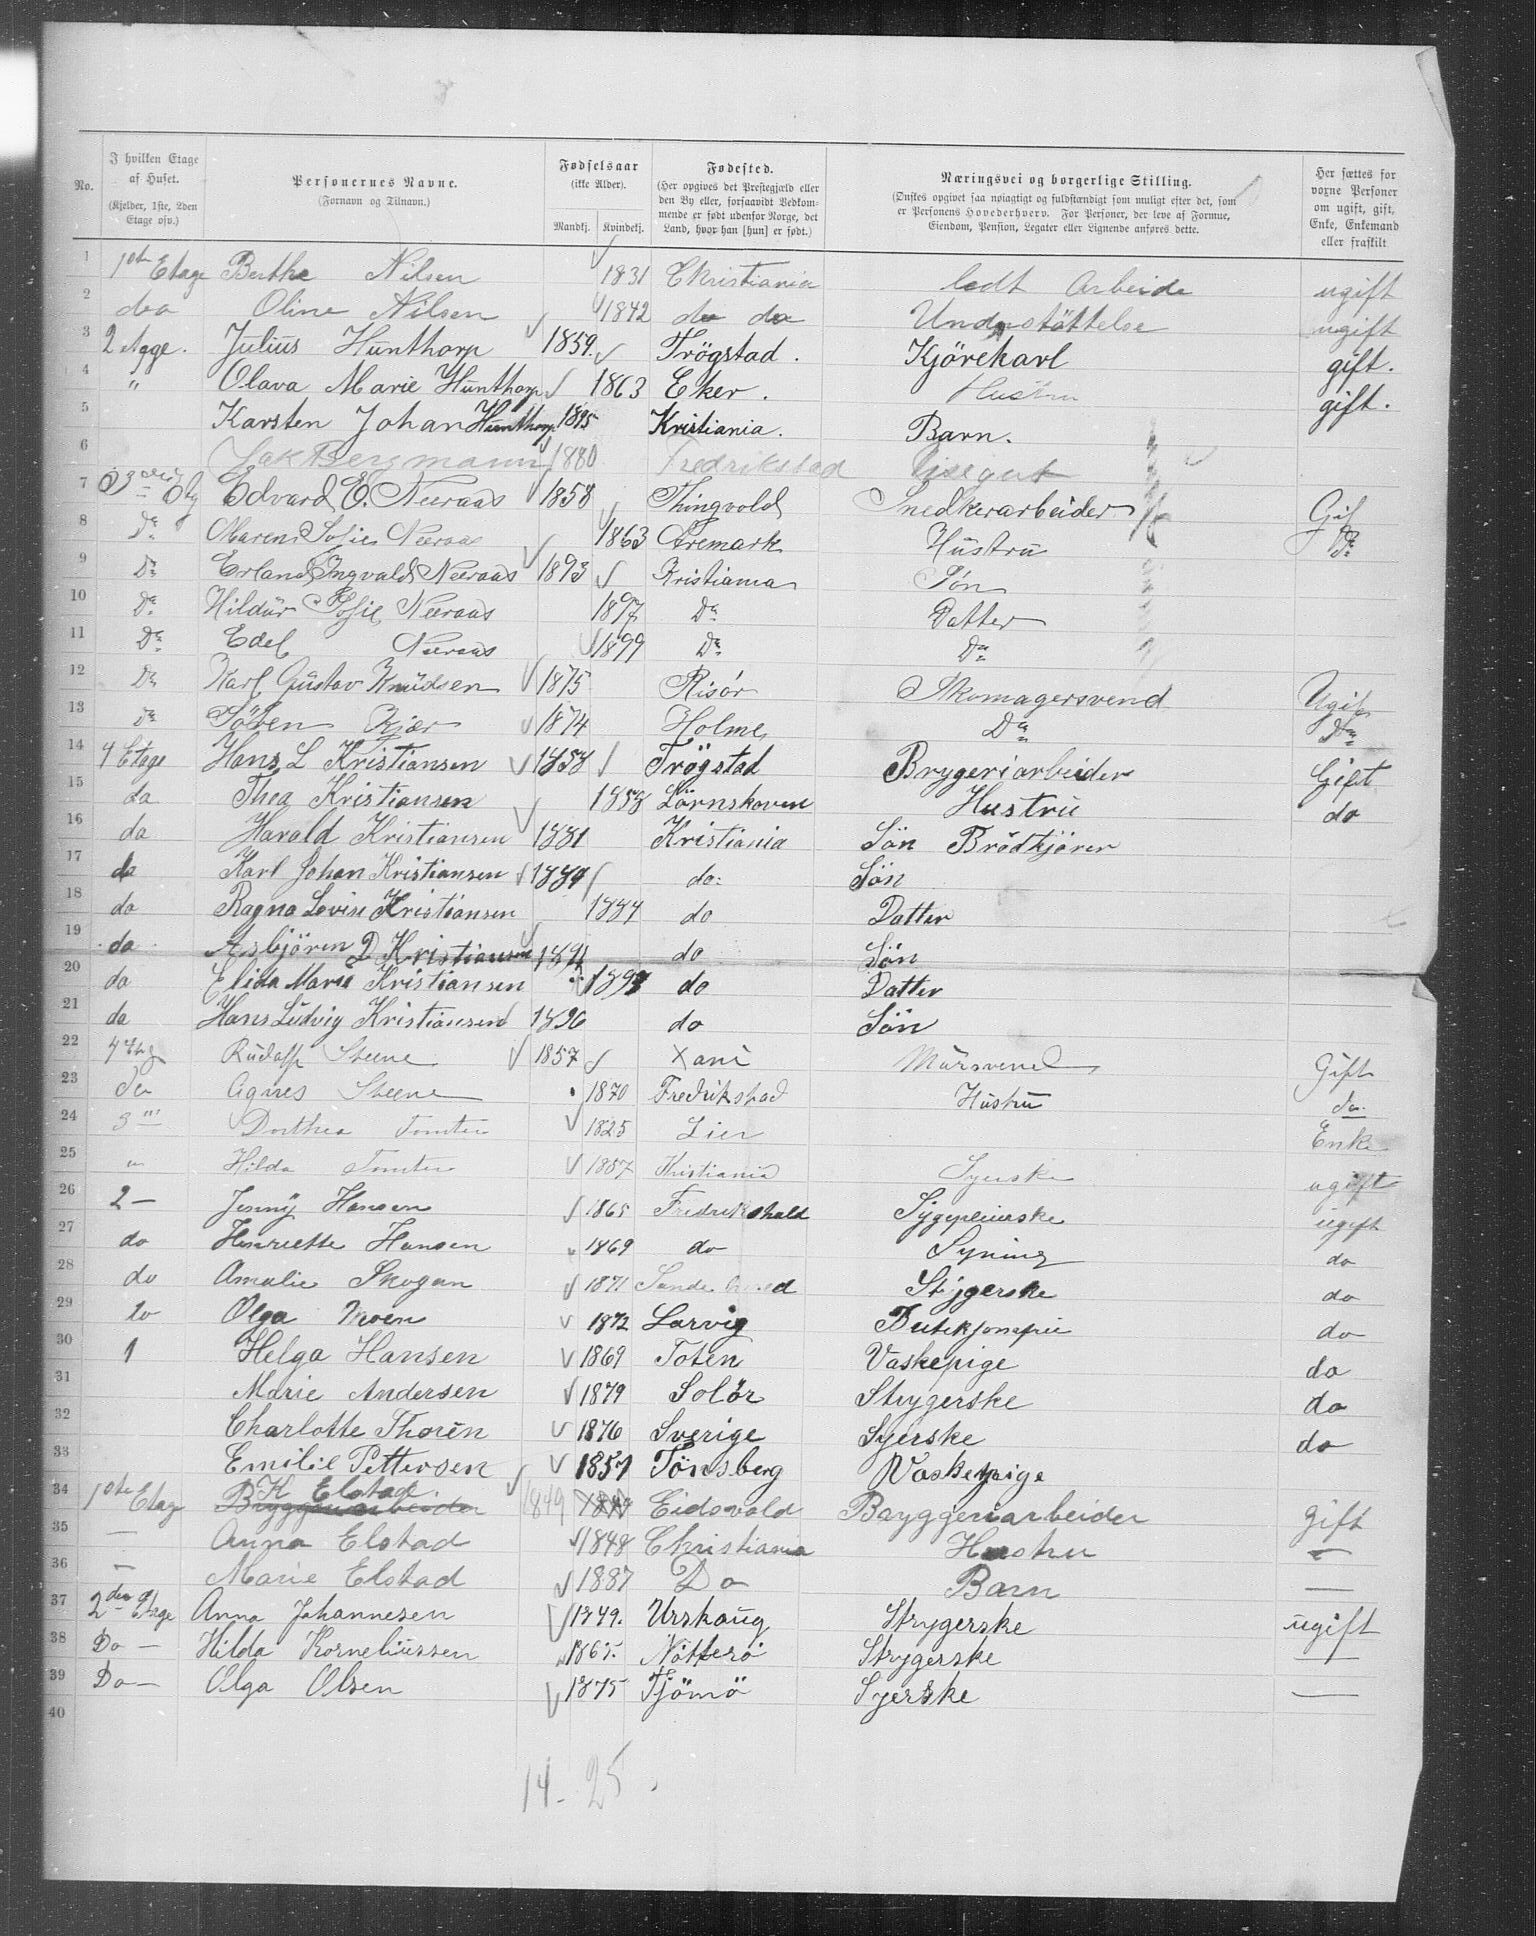 No.
I hvilken Etage af Huset.
(Kjelder, 1ste, 2den Etage osv.)
Personernes Navne.
(Fornavn og Tilnavn.)
Fødselsaar
(ikke Alder).
Mandkj. Kvindekj.
Fødested.
(Her opgives det Prestegjæld eller den By eller, forsaavidt Vedkommende er født udenfor Norge, det Land, hvor han [hun] er født.)
Næringsvei og borgerlige Stilling.
(Ønskes opgivet saa nøiagtigt og fuldstændigt som muligt efter det, som er Personens Hovederhverv. For Personer, der leve af Formue, Eiendom, Pension, Legater eller Lignende anføres dette.
Her sættes for voxne Personer om ugift, gift, Enke, Enkemand eller fraskilt
1 1ste Etage Berthe Nilsen 1831 Christiania ledt Arbeide ugift
2 doo Oline Nilsen 1842 do do Understöttelse ugift
3 2 Age. Julius Hunthorp 1859. Trögstad. Kjörekarl gift.
4 " Olava Marie Hunthorp 1863 Eker. Hustru gift.
5 Karsten Johan Hunthorp 1895 Kristiania. Barn.
6 Isak Bergmann 1880 Fredrikstad visegut
7 3die Etg Edvard E. Neeraas 1858 Thingvold Snedkerarbeider Gif
8 Do Maren Sofie Neeraas 1863 Aremark Hustru Do
9 Do Erland Ingvald Neeraas 1893 Kristiania Sön
10 Do Hildur Sofie Neeraas 1897 Do Datter
11 Do Edel Neeraas 1899 Do Do
12 Do Karl Gustav Knudsen 1875 Risör Skomagersvend Ugif
13 Do Sören Kjær 1874 Holme Do Do
14 4 Etage Hans L Kristiansen 1858 Trögstad Brygeriarbeider Gift
15 da Thea Kristiansen 1858 Lörnskoven Hustru do
16 da Harald Kristiansen 1881 Kristiania Sön Brödkjörer
17 da Karl Johan Kristiansen 1889 do: Sön
18 do Ragna Lovise Kristiansen 1887 do Datter
19 do Asbjören D Kristiansen 1891 do Sön
20 da Elida Marie Kristiansen 1893 do Datter
21 da Hans Ludvig Kristiansen 1896 do Sön
22 4 Etg Rudolf Steene 1857 Xani Mursvend Gift
23 do Agnes Steene 1870 Fredrikstad Hustru do
24 3 Dorthea Tomter 1825 Lier Enke
25 " Hilda Tomter 1887 Kristiania Syerske ugift
26 2 — Jenny Hansen 1865 Fredrikshald Sygepleierske ugift
27 do Henriette Hansen 1869 do Syning do
28 do Amalie Skogan 1871 Sande Strygerske do
29 to Olga Moen 1872 Larvig Butikjomfru do
30 1 Helga Hansen 1869 Toten Vaskepige do
31 Marie Andersen 1879 Solör Strygerske do
32 Charlotte Thorèn 1876 Sverige Syerske do
33 Emilie Pettersen 1857 Tönsberg Vaskepige
34 1ste Etage K Elstad Bryggeriarbeider 1849 Eidsvold Bryggeriarbeider gift
35 — Anna Elstad 1848 Christiania Hustru —
36 — Marie Elstad 1887 Do Barn —
37 2den Etage Anna Johannesen 1849. Urskoug Strygerske ugift
38 Do — Hilda Korneliussen 1865. Nötterö Strygerske —
39 Do — Olga Olsen 1875 Tjömö Syerske —
40
14 - 25.